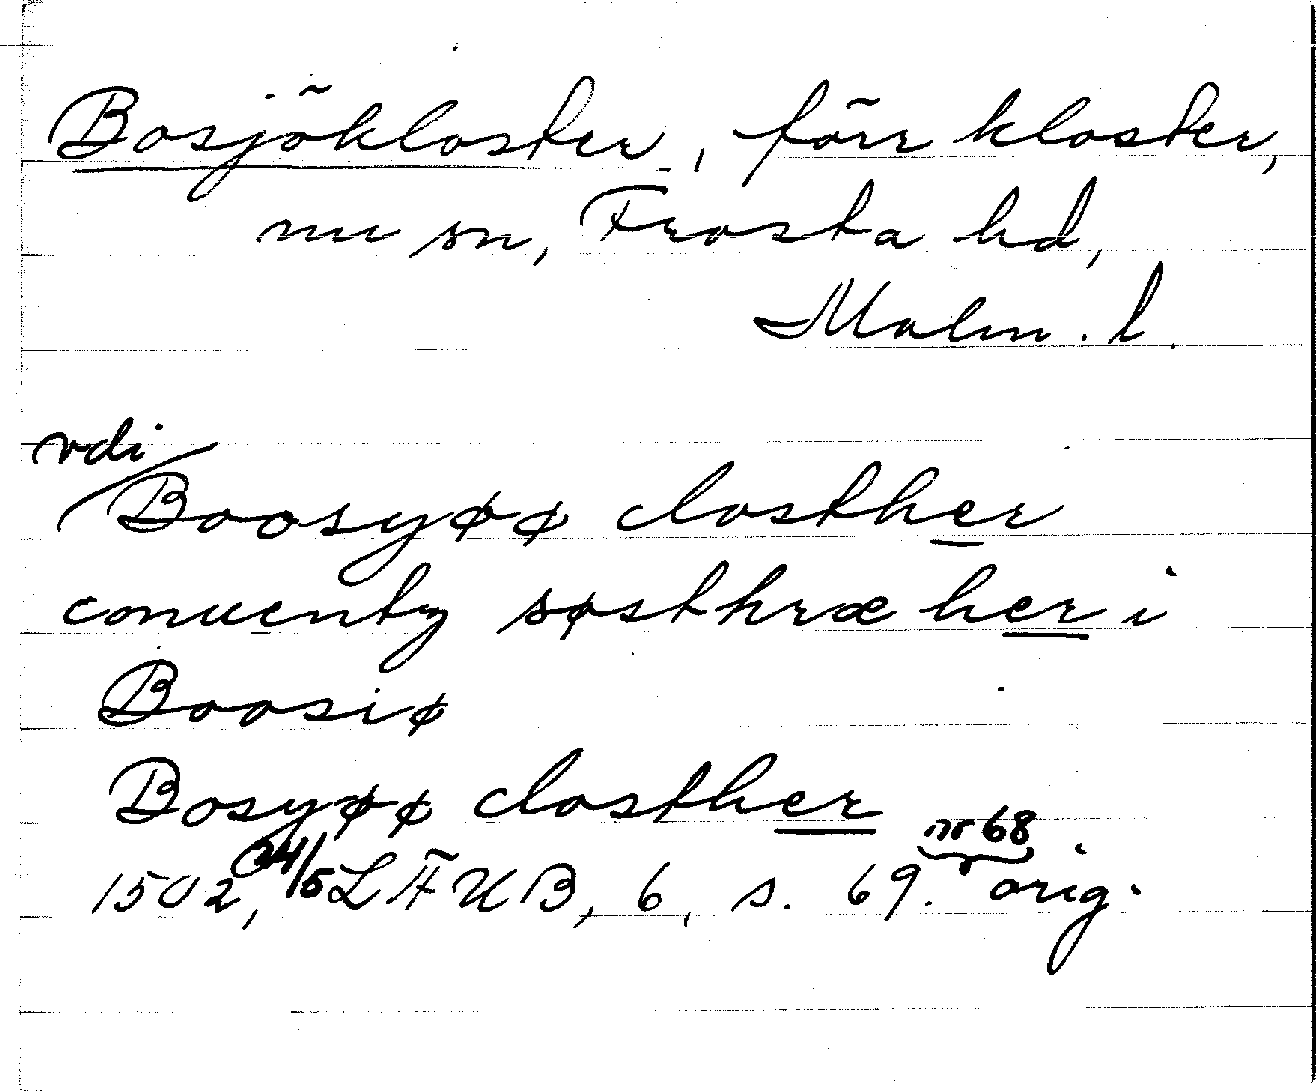 Bosjökloster, förr kloster,
nu sn, Frosta hd,
Malm. l.
vdi
Boosyøø closther
conuentz søsthræ her i
Boosiø
Bosyøø closther
1502, 24/5 LÄUB, 6, s. 69. nr 68 orig.